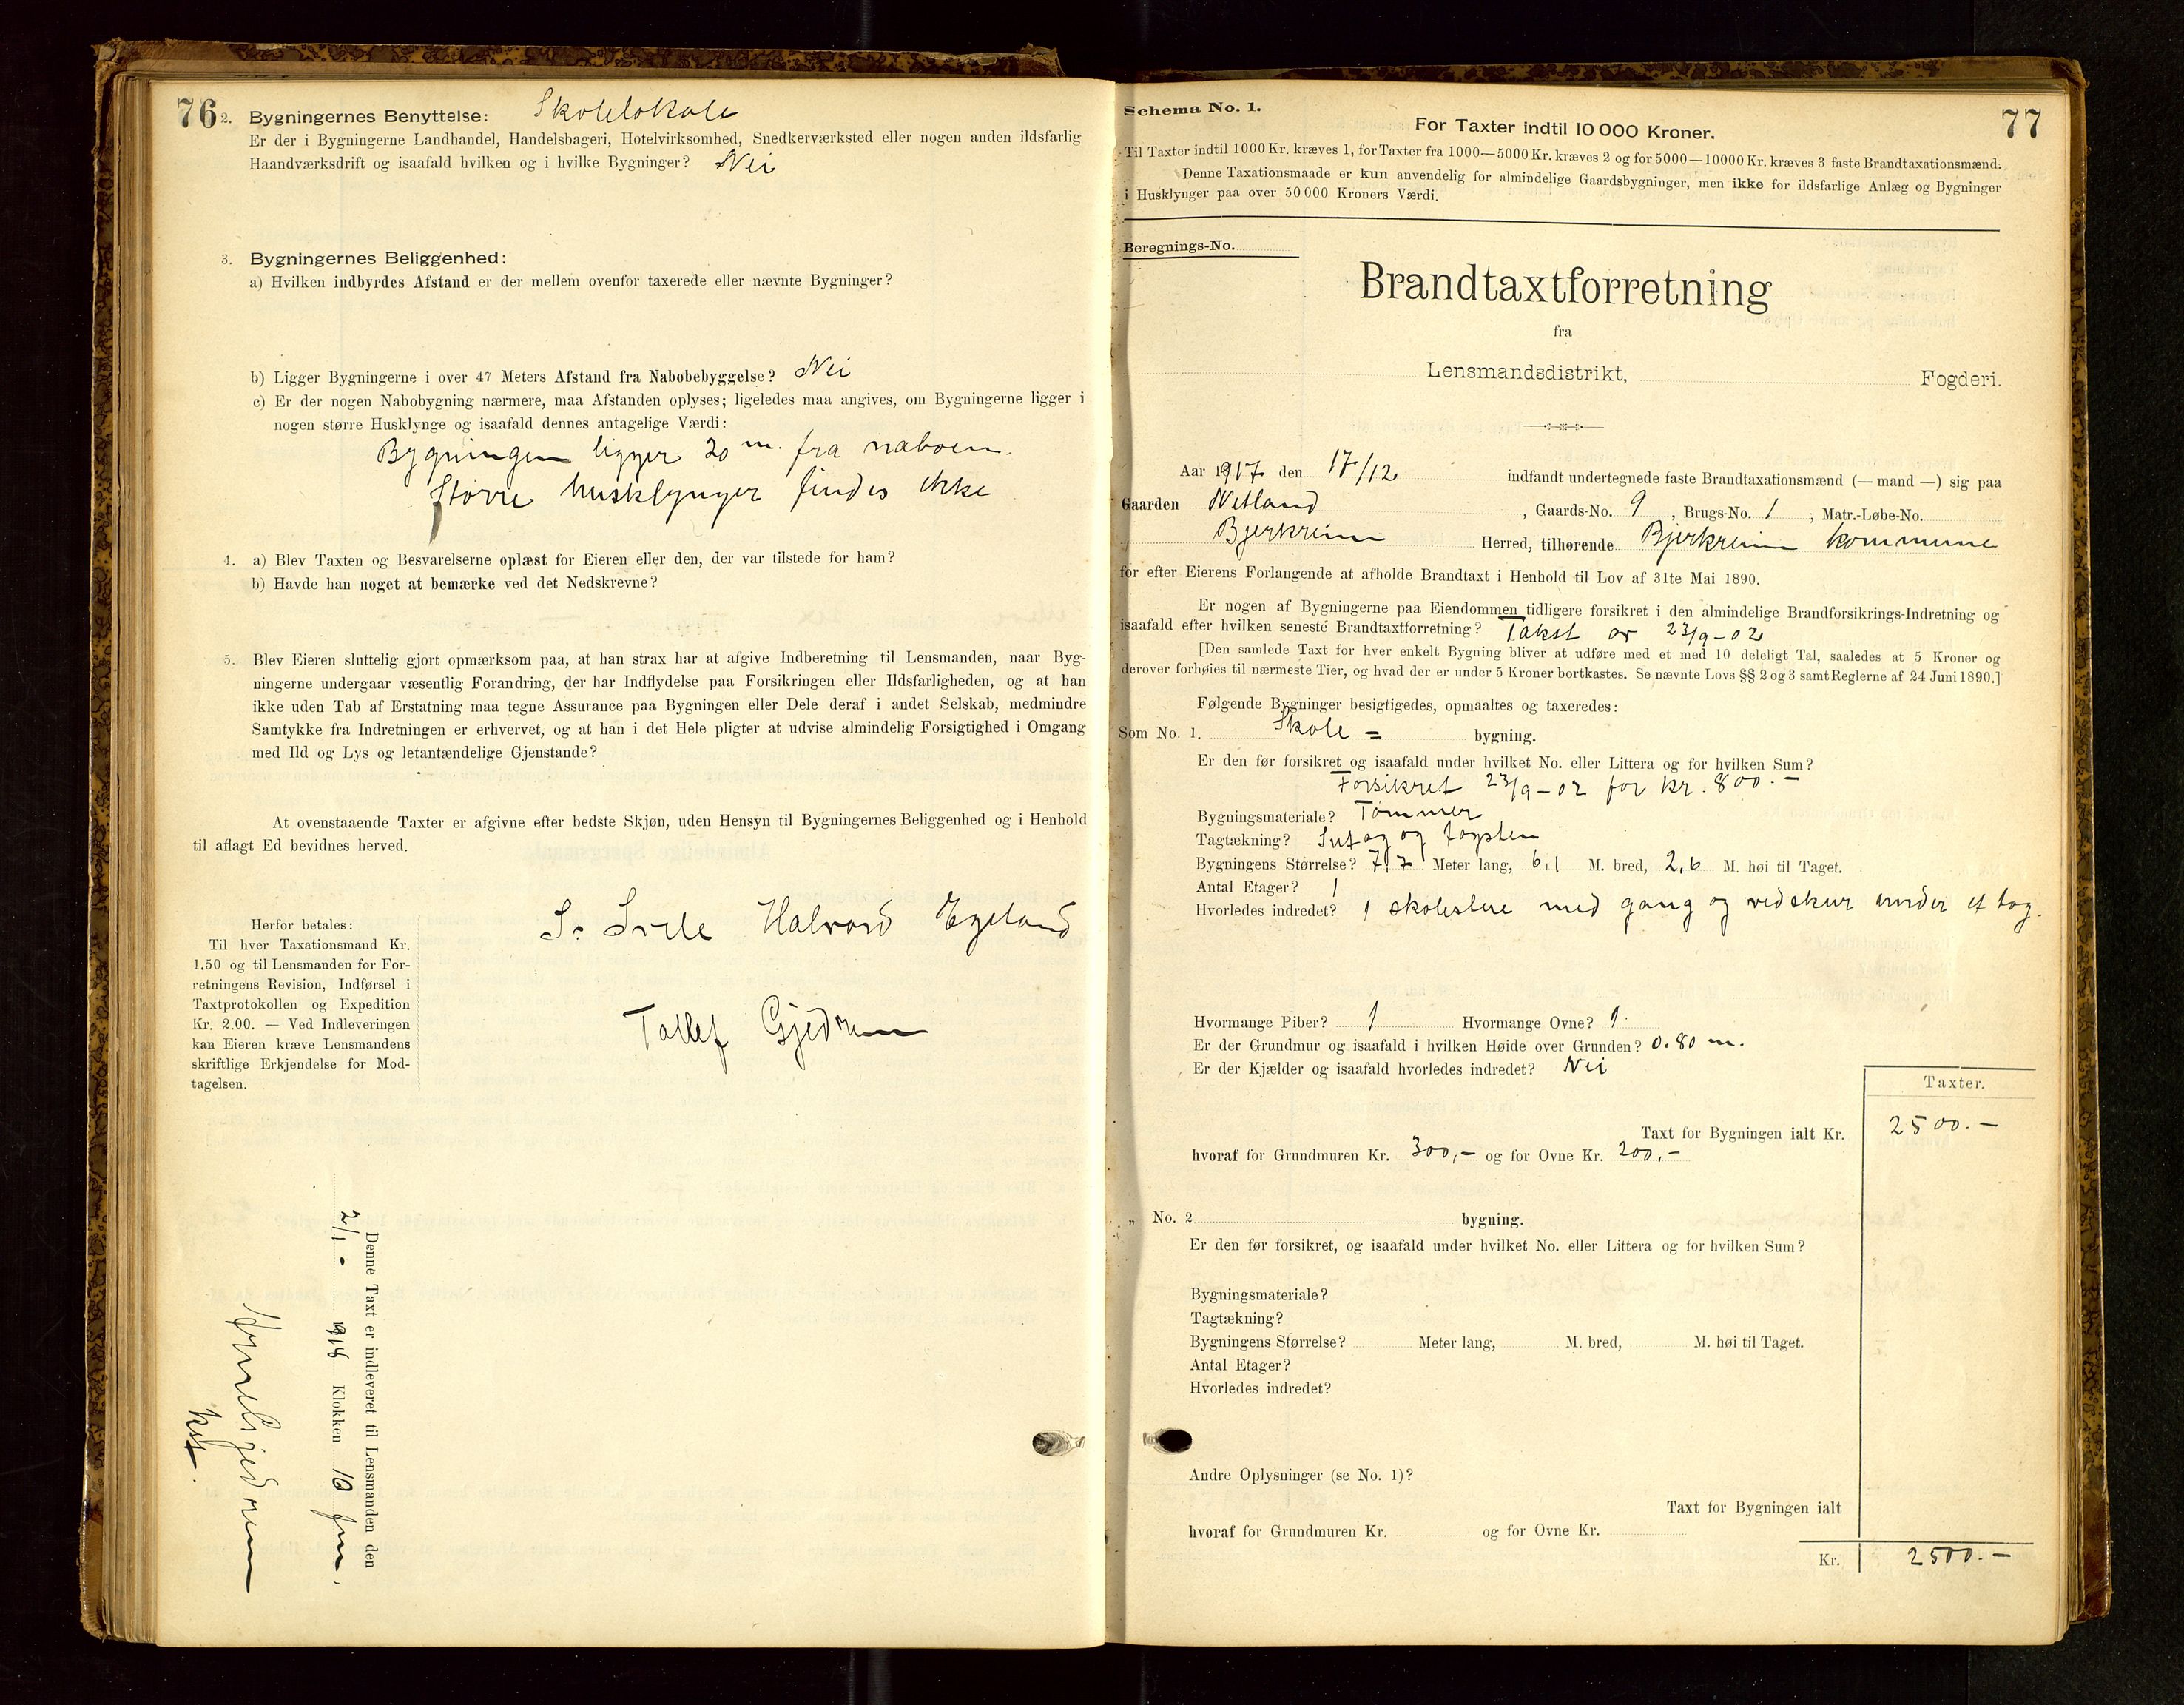 76
2. Bygningernes Benyttelse: Skolelokale
Er der i Bygningerne Landhandel, Handelsbageri, Hotelvirksomhed, Snedkerværksted eller nogen anden ildsfarlig
Haandværksdrift og isaafald hvilken og i hvilke Bygninger? Nei
3. Bygningernes Beliggenhed:
a) Hvilken indbyrdes Afstand er der mellem ovenfor taxerede eller nævnte Bygninger?
b) Ligger Bygningerne i over 47 Meters Afstand fra Nabobebyggelse? Nei
c) Er der nogen Nabobygning nærmere, maa Afstanden oplyses; ligeledes maa angives, om Bygningerne ligger i
nogen større Husklynge og isaafald dennes antagelige Værdi:
Bygningen ligger 20 m. fra naboen.
Større husklynger findes ikke
4. a) Blev Taxten og Besvarelserne oplæst for Eieren eller den, der var tilstede for ham?
b) Havde han noget at bemærke ved det Nedskrevne?
5. Blev Eieren sluttelig gjort opmærksom paa, at han strax har at afgive Indberetning til Lensmanden, naar Byg-
ningerne undergaar væsentlig Forandring, der har Indflydelse paa Forsikringen eller Ildsfarligheden, og at han
ikke uden Tab af Erstatning maa tegne Assurance paa Bygningen eller Dele deraf i andet Selskab, medmindre
Samtykke fra Indretningen er erhvervet, og at han i det Hele pligter at udvise almindelig Forsigtighed i Omgang
med Ild og Lys og letantændelige Gjenstande?
At ovenstaaende Taxter er afgivne efter bedste Skjøn, uden Hensyn til Bygningernes Beliggenhed og i Henhold
til aflagt Ed bevidnes herved.
Herfor betales:
Til hver Taxationsmand Kr.
1.50 og til Lensmanden for For-
retningens Revision, Indførsel i
Taxtprotokollen og Expedition
Kr. 2.00. — Ved Indleveringen
kan Eieren kræve Lensmandens
skriftlige Erkjendelse for Mod-
tagelsen.
Halvard Egeland
Tollef Gjedrem
Denne Taxt er indleveret til Lensmanden den
2/1 - 1918 Klokken 10 fm.
Gjedrem
kst.
77
Schema No. 1.
For Taxter indtil 10 000 Kroner.
Til Taxter indtil 1000 Kr. kræves 1, for Taxter fra 1000—5000 Kr. kræves 2 og for 5000—10000 Kr. kræves 3 faste Brandtaxationsmænd.
Denne Taxationsmaade er kun anvendelig for almindelige Gaardsbygninger, men ikke for ildsfarlige Anlæg og Bygninger
i Husklynger paa over 50 000 Kroners Værdi.
Beregnings-No.
Brandtaxtforretning
fra
Lensmandsdistrikt, Fogderi.
Aar 1917 den 17/12 indfandt undertegnede faste Brandtaxationsmænd (— mand —) sig paa
Gaarden Netland, Gaards-No. 9, Brugs-No. 1, Matr.-Løbe-No.
Bjerkreim Herred, tilhørende Bjerkreim kommune
for efter Eierens Forlangende at afholde Brandtaxt i Henhold til Lov af 31te Mai 1890.
Er nogen af Bygningerne paa Eiendommen tidligere forsikret i den almindelige Brandforsikrings-Indretning og
isaafald efter hvilken seneste Brandtaxtforretning? Takst av 23/9-02
[Den samlede Taxt for hver enkelt Bygning bliver at udføre med et med 10 deleligt Tal, saaledes at 5 Kroner og
derover forhøies til nærmeste Tier, og hvad der er under 5 Kroner bortkastes. Se nævnte Lovs §§ 2 og 3 samt Reglerne af 24 Juni 1890.]
Følgende Bygninger besigtigedes, opmaaltes og taxeredes:
Som No. 1. Skole = bygning.
Er den før forsikret og isaafald under hvilket No. eller Littera og for hvilken Sum?
Forsikret 23/9-02 for kr. 800.-
Bygningsmateriale? Tømmer
Tagtækning? Sutag og tagsten
Bygningens Størrelse? 7,7 Meter lang, 6,1 M. bred, 2,6 M. høi til Taget.
Antal Etager? 1
Hvorledes indredet? 1 skolestue med gang og vedskur under et tag.
Hvormange Piber? 1 Hvormange Ovne? 1.
Er der Grundmur og isaafald i hvilken Høide over Grunden? 0.80 m.
Er der Kjælder og isaafald hvorledes indredet? Nei
Taxter.
Taxt for Bygningen ialt Kr. 2500.-
hvoraf for Grundmuren Kr. 300,- og for Ovne Kr. 200,-
„ No. 2. bygning.
Er den før forsikret, og isaafald under hvilket No. eller Littera og for hvilken Sum?
Bygningsmateriale?
Tagtækning?
Bygningens Størrelse? Meter lang, M. bred, M. høi til Taget.
Antal Etager?
Hvorledes indredet?
Andre Oplysninger (se No. 1)?
Taxt for Bygningen ialt
hvoraf for Grundmuren Kr. og for Ovne Kr.
Kr. 2500.-